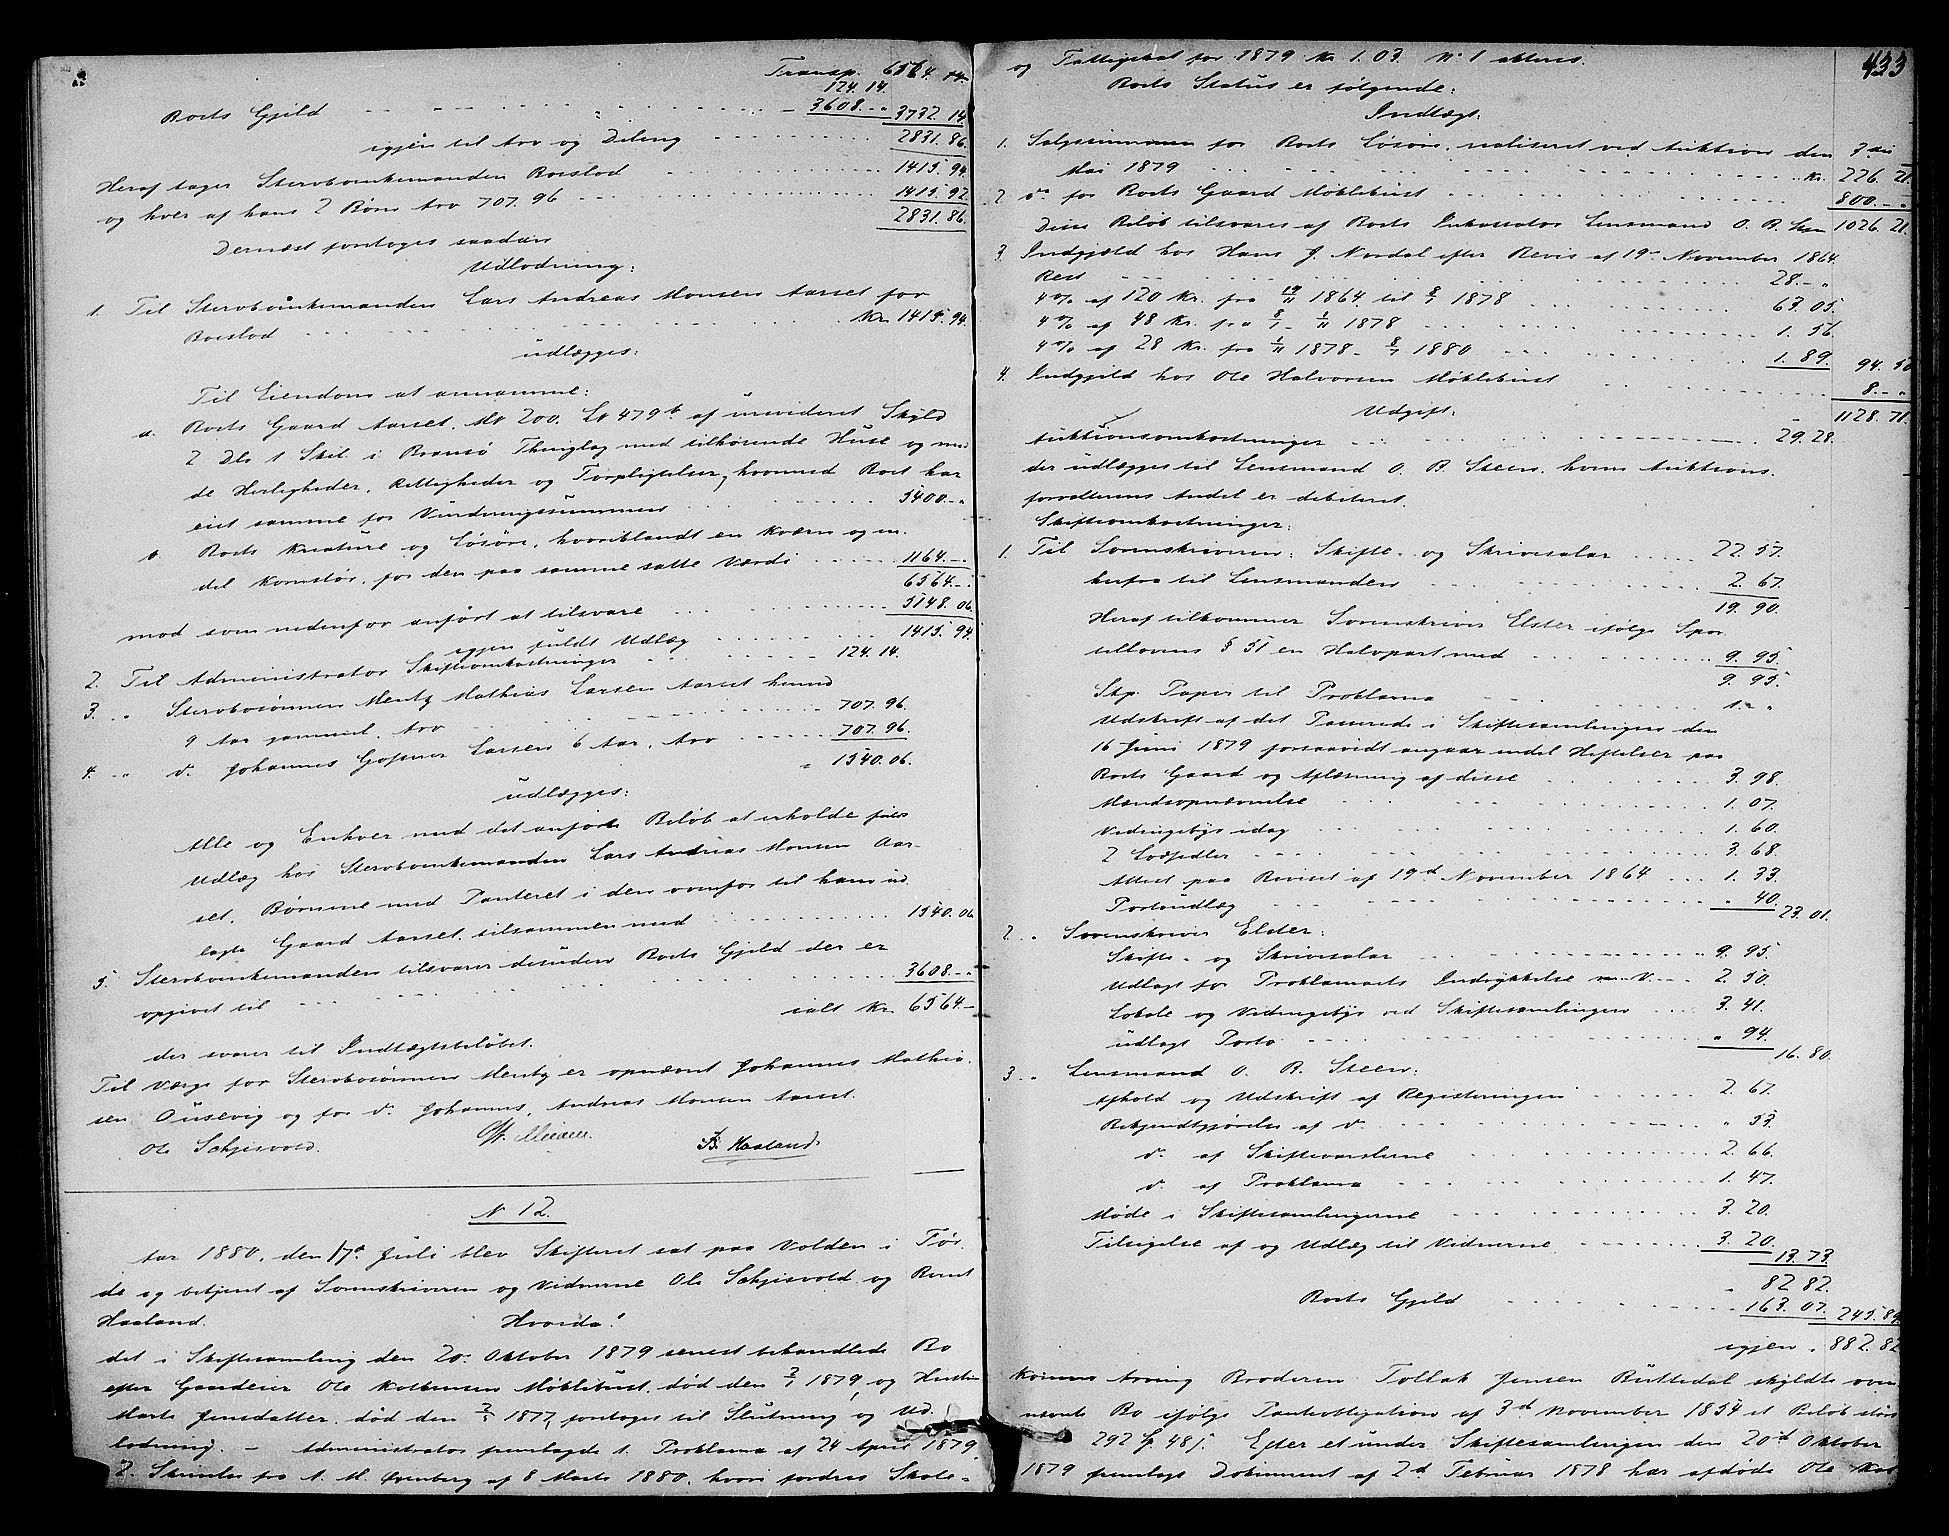 Transp. 6564.
124.14.
Boets Gjeld 3608.-. 3732.14
igjen til Arv og Deling 2831.86.
Heraf tager Stervboenkemanden Boeslod 1415.94
og hver af hans 2 Børn Arv 707.96 1415.92
2831.86.
Dernæst foretoges saadan
Udlodning:
1. Til Stervboenkemanden Lars Andreas Monsen Aarset for
Boeslod Kr. 1415.94.
udlægges:
Til Eiendom at annamme:
a. Boets Gaard Aarset. M No 200. L No 479b af urevideret Skyld
2 Dlr 1 Skil. i Brønsø Thinglag med tilhørende Huse og med
de Herligheder, Rettigheder og Forpligtelser, hvormed Boet har
eiet samme for Vurderingssummen 5400.-.
b. Boets Kreature og Løsøre, hvoriblandt en Kværn og en
del Kornstør, for den paa samme satte Værdi 1164.-.
6564.-.
mod som nedenfor anført at tilsvare 5148.06.
igjen fuldt Udlæg 1415.94
2. Til Administrator Skifteomkostninger 124.14.
3. " Stervbosønnen Mentz Mathias Larsen Aarset henved
9 Aar gammel, Arv 707.96.
4. " do Johannes Larsen 6 Aar, Arv 707.96.
" 1540.06.
udlægges:
Alle og Enhver med det anførte Beløb at erholde
Udlæg hos Stervboenkemanden Lars Andreas Monsen Aar-
set, Børnene med Panteret i den ovenfor til ham ud-
lagte Gaard Aarset, tilsammen med 1540.06
5. Stervboenkemanden tilsvarer desuden Boets Gjeld der er
opgivet til 3608.-.
ialt Kr. 6564.-
der svarer til Indtægtsbeløbet.
Til Værge for Stervbosønnen Mentz er opnævnt Johannes Mathia-
sen Ousevig og for do Johannes, Andreas Monsen Aarset.
Ole Schjesvold. B. Haaland.
No 12.
Aar 1880, den 17de Juli blev Skifteret sat paa Volden i For-
de og betjent af Sorenskriveren og Vidnerne Ole Schjesvold og Bernt
Haaland. Hvorda:
det i Skiftesamling den 20. Oktober 1879 senest behandlede Bo
efter Gaardeier Ole Kolbensen Møklebust, død den 2/1 1879, og Hustru
Marte Jensdatter, død den 1877, foretoges til Slutning og Ud-
lodning. - Administrator fremlagde 1. Proklama af 24 April 1879
2. Skrivelse fra A. M. af 8 Marts 1880, hvori fordres Skole-
433
og Fattigskat for 1879 Kr 1.03. No 1 atteres.
Boets Status er følgende:
Indtægt.
1. Salgssummen for Boets Løsøre, realiseret ved Auktion den 7de
Mai 1879 Kr. 226.21.
2 do for Boets Gaard Møklebust 800.-.
Disse Beløb tilsvares af Boets Inkassator Lensmand O. B. Steen 1026.21.
3. Indgjæld hos Hans J. Nordal efter Bevis af 19de November 1864.
Rest 28.-.
4 % af 120 Kr. fra 19/11 1864 til 8/1 1878 63.05.
4 % af 48 Kr. fra 8/1 - 1/11 1878 1.56
4 % af 28 Kr. fra 1/11 1878 - 8/7 1880 1.89. 94.50
4. Indgjeld hos Ole Halvorsen Møklebust 8.-.
1128.71.
Udgift:
Auktionsomkostninger 29.28.
der udlægges til Lensmand O. B. Steen, hvem Auktions-
forvalterens Andel er debiteret.
Skifteomkostninger:
1. Til Sorenskriveren: Skifte- og Skriversalar 22.57.
herfra til Lensmanden 2.67.
19.90.
Heraf tilkommer Sorenskriver Elster ifølge Spor-
tellovens § 51 en Halvpart med 9.95.
9.95.
Stp. Papir til Proklama 1.-.
Udskrift af det Passerede i Skiftesamlingen den
16 Juni 1879 forsaavidt angaar endel Heftelser paa
Boets Gaard og Aflæsning af disse 3.98.
Mandsopnævnelse 1.07.
Vidnegebyr idag 1.60.
2 Lodsedler 3.68.
Attest paa Beviset af 19de November 1864 1.33.
Portoudlæg " 40.
23.01.
2. " Sorenskriver Elster:
Skifte- og Skriversalar 9.95.
Udlagt for Proklamaets Indrykkelse 2.50.
Lokale og Vidnegebyr ved Skiftesamlingen 3.41.
udlagt Porto " 94.
16.80.
3. " Lensmand O. B. Steen:
Afhold og Udskrift af Registeringen 2.67.
Bekjendtgjørelse af do " 53.
do af Skiftevarslerne 2.66.
do af Proklama 1.47.
Møde i Skiftesamlingerne 3.20.
Tilsigelse af og Udlæg til Vidnerne 3.20.
13.73.
82.82.
Boets Gjeld 163.07. 245.89
igjen " 882.82
Konens Arving Broderen Tollak Jensen Buttedal skyldte oven-
nævnte Bo ifølge Panteobligation af 3de November 1854 et Beløb stort
292 48 s. Efter et under Skiftesamlingen den 20de Oktober
1879 fremlagt Dokument af 2de Februar 1878 har afdøde Ole Kol-